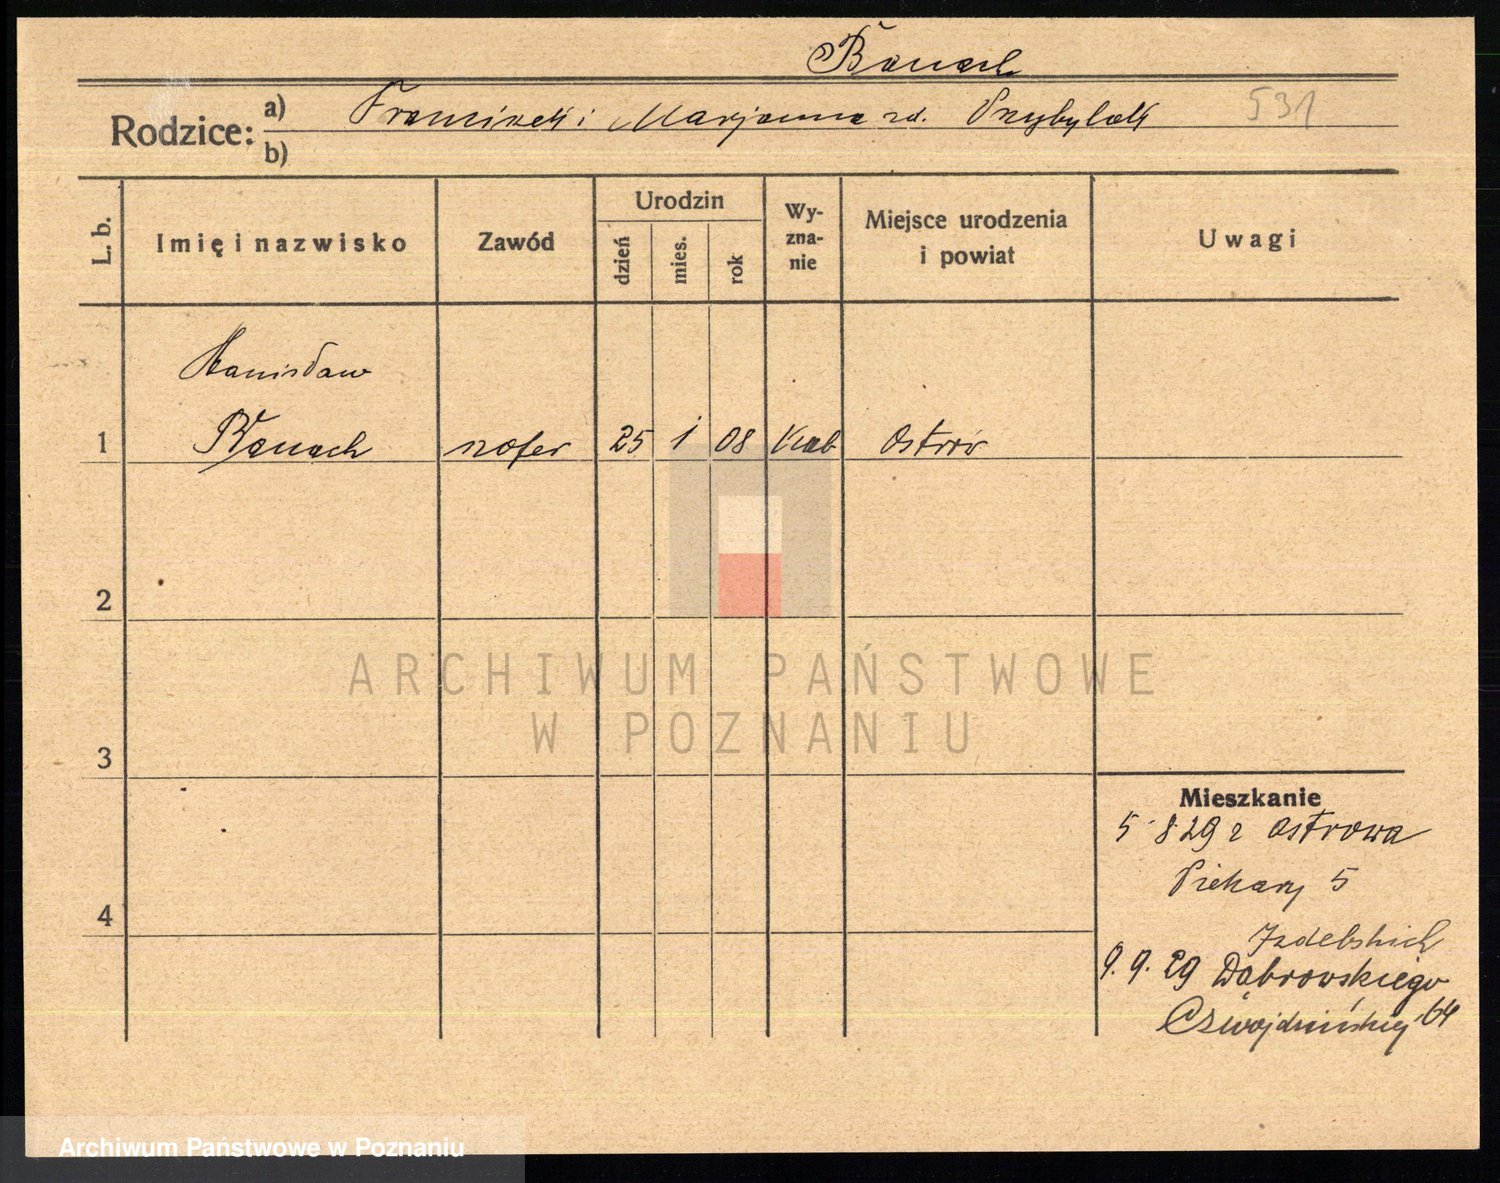 Banach
Rodzice: a) Franciszek i Marjanna zd. Przybylak 531
b)
L. b. Imię i nazwisko Zawód Urodzin dzień mies. rok Wy-zna-nie Miejsce urodzenia i powiat Uwagi
Stanisław
1 Banach szofer 25 1 08 kat Ostrów
2
ARCHIWUM PAŃSTWOWE
W POZNANIU
3
Mieszkanie
5 8 29 z Ostrowa
Piekary 5
4
9. 9. 29 Dąbrowskiego 64
Archiwum Państwowe w Poznaniu